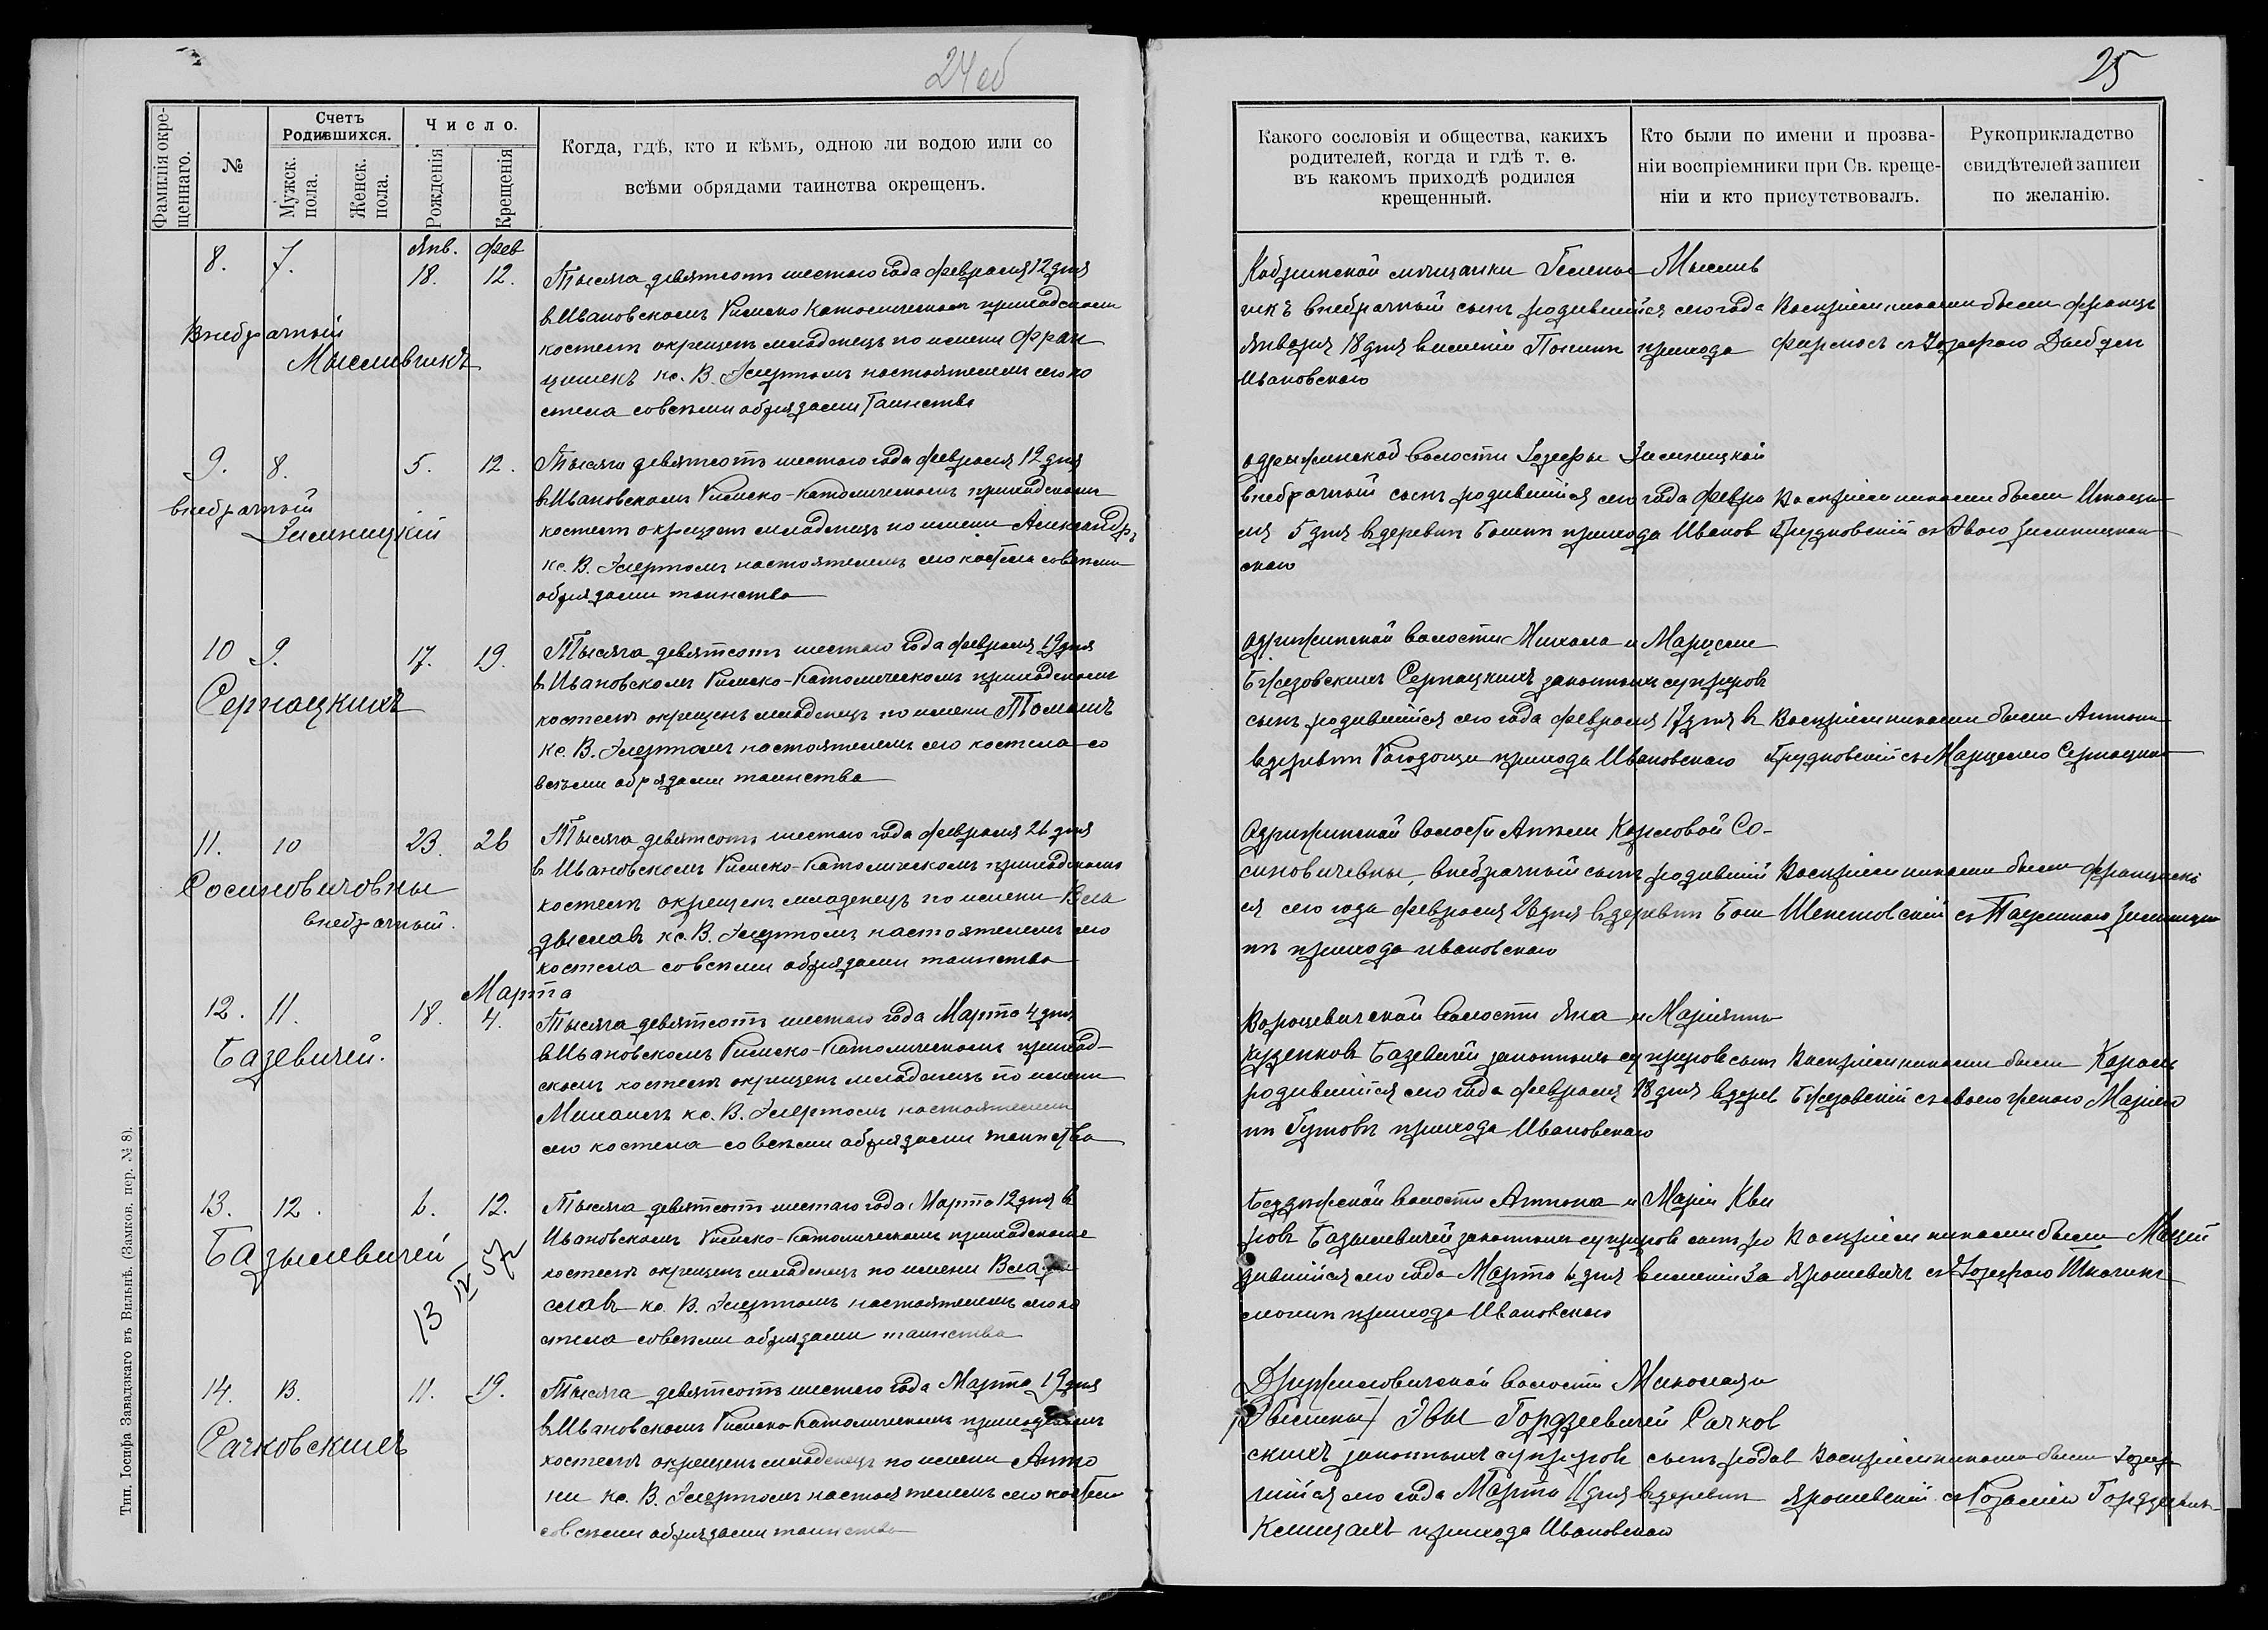 24 об
25
Фамилія окре-
щеннаго.
№
Счетъ
Родившихся.
Мужск.
пола.
Женск.
пола.
Число.
Рожденія
Крещенія
Когда, гдѣ, кто и кѣмъ, одною ли водою или со
всѣми обрядами таинства окрещенъ.
Янв. Фев
8. 7. 18. 12.
Внебрачный
Мысливчикъ
Тысяча девятсотъ шестаго года февраля 12 дня
в Ивановскомъ Римско Католическомъ приходскомъ
костелѣ окрещенъ младенецъ по имени Фран
цишекъ кс. В. настоятелемъ сего ко
стела совсѣми обрядами Таинства
9. 8. 5. 12.
внебрачный
Зимницкій
Тысяча девятсотъ шестаго года февраля 12 дня
в Ивановскомъ Римско-Католическомъ приходскомъ
костелѣ окрещенъ младенецъ по имени Александръ
кс. В. настоятелемъ сего костела совсѣми
обрядами таинства
10 9. 17. 19.
Серпацкихъ
Тысяча девятсотъ шестаго года февраля 19 дня
в Ивановскомъ Римско-Католическомъ приходскомъ
костелѣ окрещенъ младенецъ по имени Томашъ
кс. В. настоятелемъ сего костела со
всѣми обрядами таинства
11. 10 23. 26
Сосиновичовны
внебрачный.
Тысяча девятсотъ шестаго года февраля 26 дня
в Ивановскомъ Римско-Католическомъ приходскомъ
костелѣ окрещенъ младенецъ по имени Вла
дыславъ кс. В. настоятелемъ сего
костела совсѣми обрядами таинства
Марта
12. 11. 18. 4.
Базевичей.
Тысяча девятсотъ шестаго года Марта 4 дня
в Ивановскомъ Римско-Католическомъ приход-
скомъ костелѣ окрещенъ младенецъ по имени
Михаилъ кс. В. настоятелемъ
сего костела совсѣми обрядами таинства
13. 12. 6. 12.
Базылевичей
13 IV 57
Тысяча девятсотъ шестаго года Марта 12 дня в
Ивановскомъ Римско-Католическомъ приходскоме
костелѣ окрещенъ младенецъ по имени Влады
славъ кс. В. настоятелемъ сего ко
стела совсѣми обрядами таинства
14. 13. 11. 19.
Сачковскихъ
Тысяча девятсотъ шестаго года Марта 19 дня
в Ивановскомъ Римско Католическомъ приходскомъ
костелѣ окрещенъ младенецъ по имени Анто
ни кс. В. настоятелемъ сего костела
совсѣми обрядами таинства
Тип. Іосифа Завадзкаго въ Вильнѣ. (Замков. пер. № 8).
Какого сословія и общества, какихъ
родителей, когда и гдѣ т. е.
въ какомъ приходѣ родился
крещенный.
Кто были по имени и прозва-
ніи воспріемники при Св. креще-
ніи и кто присутствовалъ.
Рукоприкладство
свидѣтелей записи
по желанію.
Кобринской мѣщанки Гелены Мыслив
чикъ внебрачный сынъ родившійся сего года
Января 18 дня в имѣніи прихода
Ивановскаго
Воспріемниками были Францъ
съ Іозефою
Одрыжинской волости Іозефы Зимницкой
внебрачный сынъ родившійся сего года февра
ля 5 дня в деревни прихода Иванов
скаго
Воспріемниками были
Грудковскій съ Эвою Зимницкою
Одрижинской волости Михала и Марцели
Бжезовскихъ Серпацкихъ законныхъ супруговъ
сынъ родившійся сего года февраля 17 дня в
в деревни прихода Ивановскаго
Воспріемниками были Антони
Грудковскій съ Марцелею Серпацкою
Одрижинской волости Анели Карловой Со-
синовичевны, внебрачный сынъ родившій
ся сего года февраля 23 дня в деревни
прихода ивановскаго
Воспріемниками были Францискъ
съ Паулиною Зимницкою
Ворощевичской волости Яна и Маріянны
Базевичей законныхъ супруговъ сынъ
родившійся сего года февраля 18 дня в дерев
ни Гутовѣ прихода Ивановскаго
Воспріемниками были Кароль
Бжезовскій съ своею женою Маріею
Бездѣжской волости Антона и Маріи
Базылевичей законныхъ супруговъ сынъ ро
дившійся сего года Марта 6 дня в имѣніи За
прихода Ивановскаго
Воспріемниками были Мацей
Ярошевичъ съ Іозефою
Дружиловичской волости Миколая и
Эвы Гордзеевичей Сачков
скихъ законныхъ супруговъ сынъ родив
шійся сего года Марта 11 дня в деревни
Клещахъ прихода Ивановскаго
Воспріемниками были Іозеф
Ярошевскій съ Розаліею